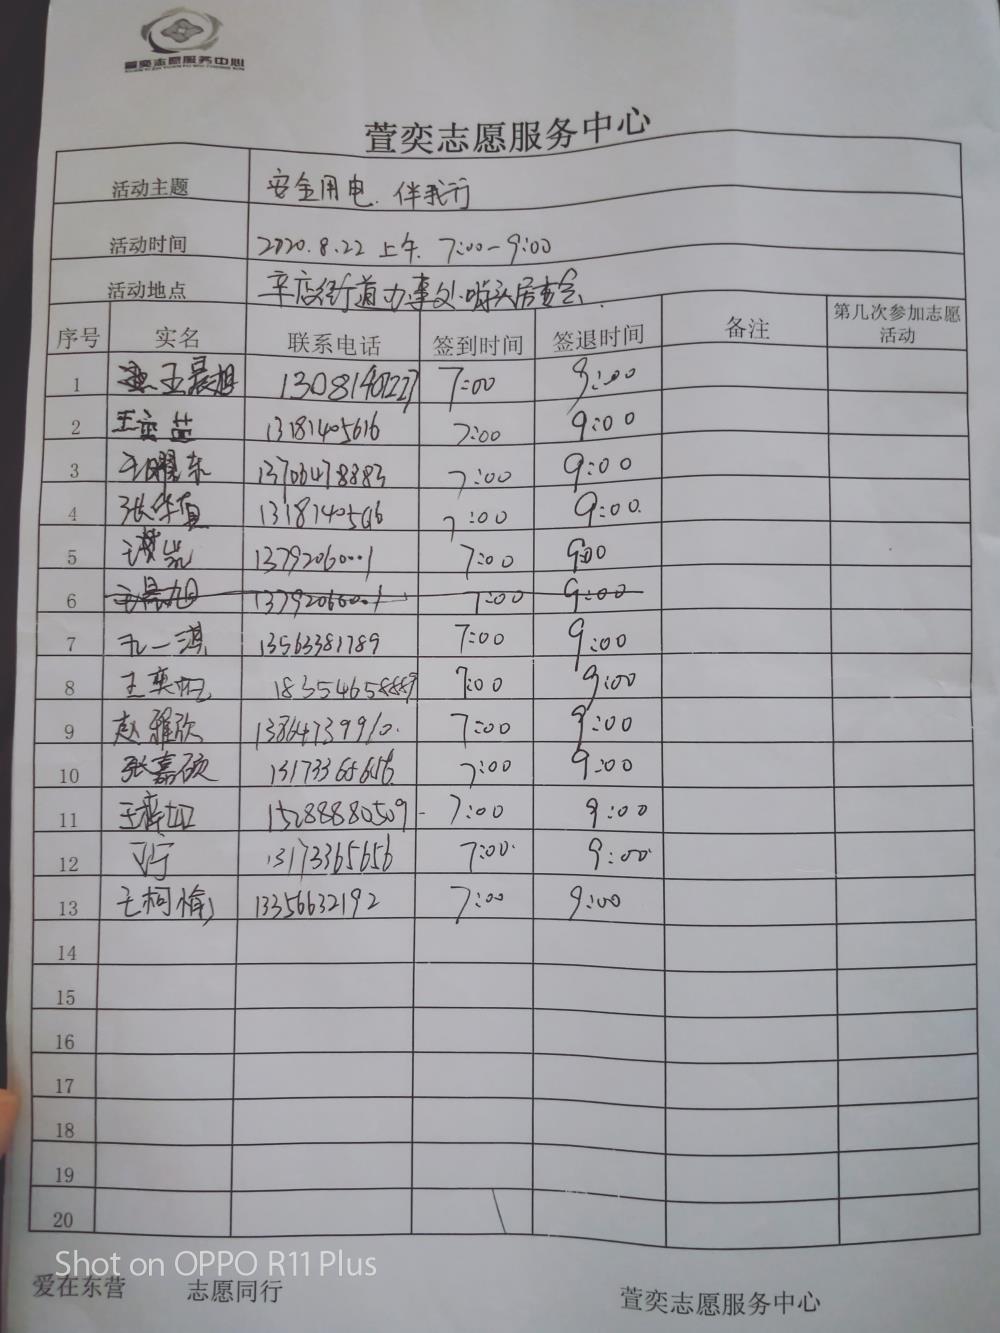 萱奕志愿服务中心
萱奕志愿服务中心
活动主题 安全用电. 伴我行
活动时间 2020.8.22 上午. 7:00-9:00
活动地点 辛店街道办事处·哨头居委会.
序号 实名 联系电话 签到时间 签退时间 备注 第几次参加志愿活动
1 王晨旭 7:00 9:00
2 王奕益 13181405616 7:00 9:00
3 13706478883 7:00 9:00
4 张华 7:00 9:00.
5 13792060001 7:00 9:00
6 王晨旭 13792060001 7:00 9:00
7 一淇 13563381789 7:00 9:00
8 王奕 7:00 9:00
9 赵雅欣 13864739910. 7:00 9:00
10 张嘉硕 13173365656 7:00 9:00
11 王梓 15288880509 - 7:00 9:00
12 13173365656 7:00 9:00
13 王柯愉 13356632192 7:00 9:00
14
15
16
17
18
19
20
Shot on OPPO R11 Plus
爱在东营 志愿同行 萱奕志愿服务中心